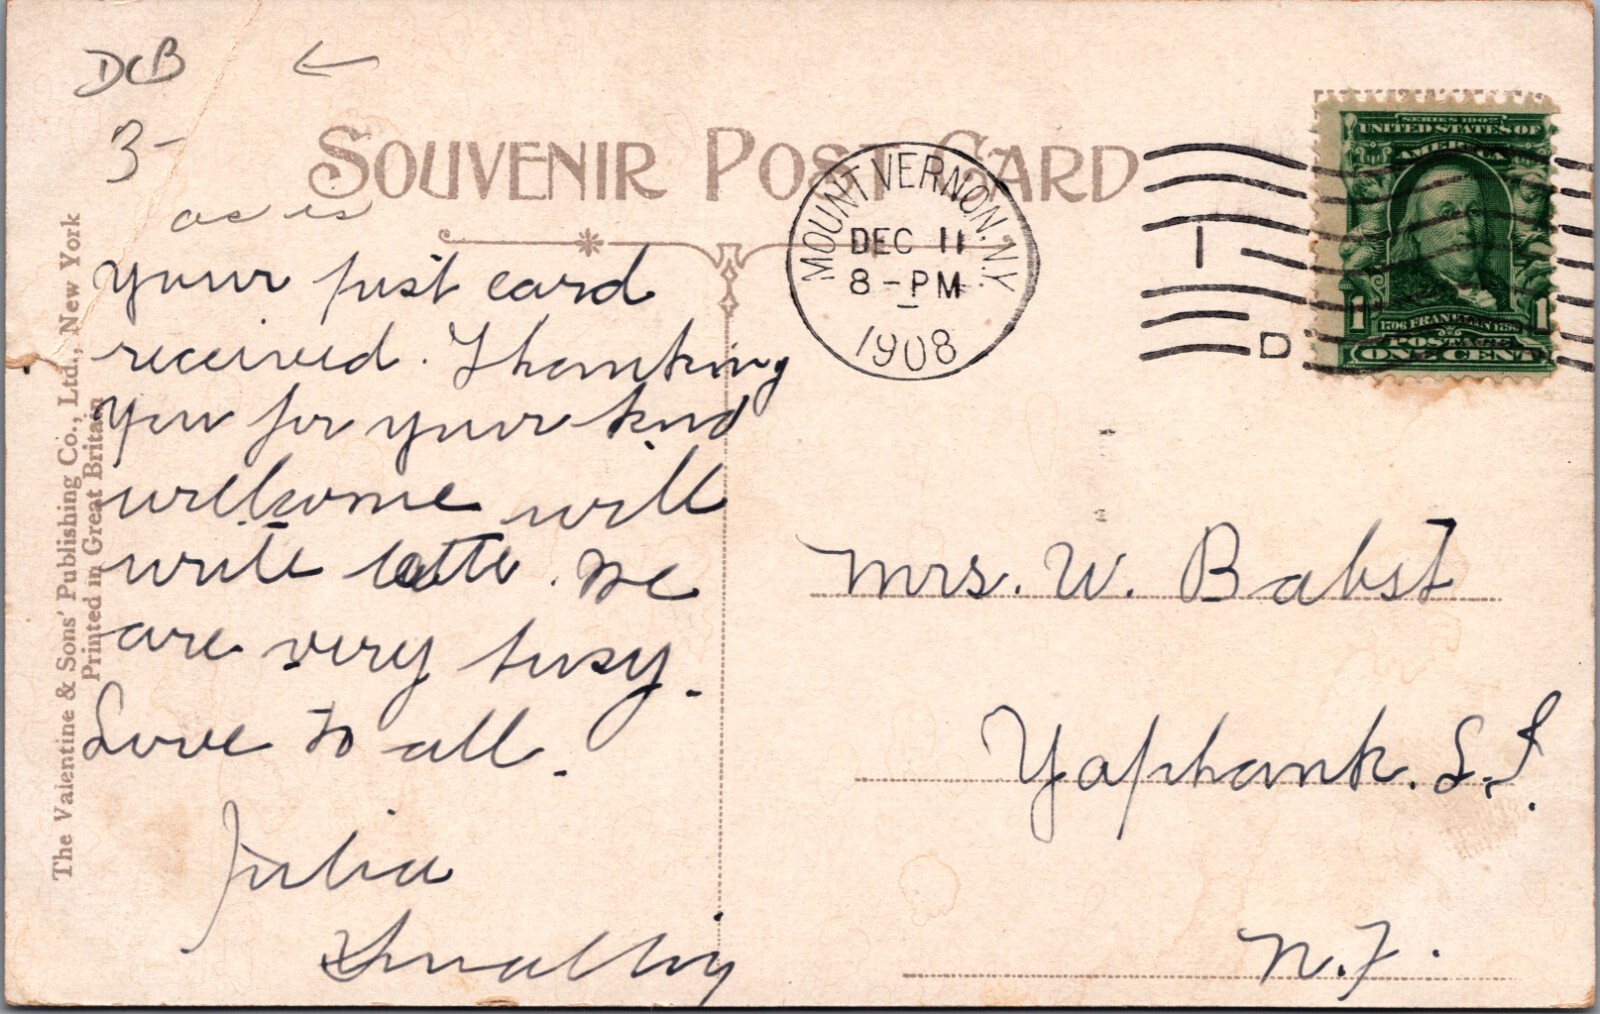 DCB ←
3-
as is
SOUVENIR POST CARD
MOUNT VERNON. N.Y.
DEC 11
8-PM
1908
1
D
SERIES 1902
UNITED STATES OF
AMERICA
1 1
1706 FRANKLIN 1790
POSTAGE
ONE CENT
The Valentine & Sons' Publishing Co., Ltd., New York
Printed in Great Britain
your post card
received. Thanking
you for your kind
welcome will
write later. We
are very busy.
Love to all.
Julia
Mrs. W. Babst
Yaphank. L.I.
N.Y.